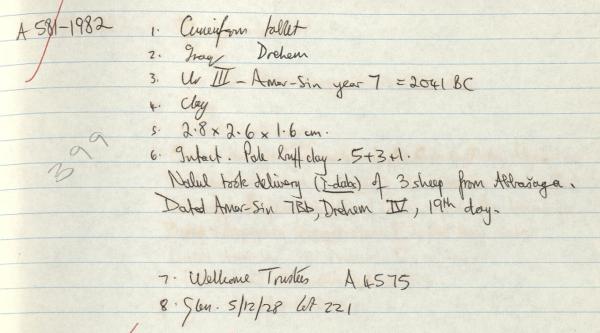 A 581-1982
1. Cuneiform tablet
2. Iraq Drehem
3. Ur III - Amar-Sin year 7 = 2041 BC
4. Clay
5. 2.8 x 2.6 x 1.6 cm.
399
6. Intact. Pale buff clay. 5+3+1.
Nalul took delivery (ì-dab5) of 3 sheep from Abbašaga.
Dated Amar-Sin 7Bb, Drehem IV, 19th day.
7. Wellcome Trustees A 4575
8. Glen. 5/12/28 Lot 221